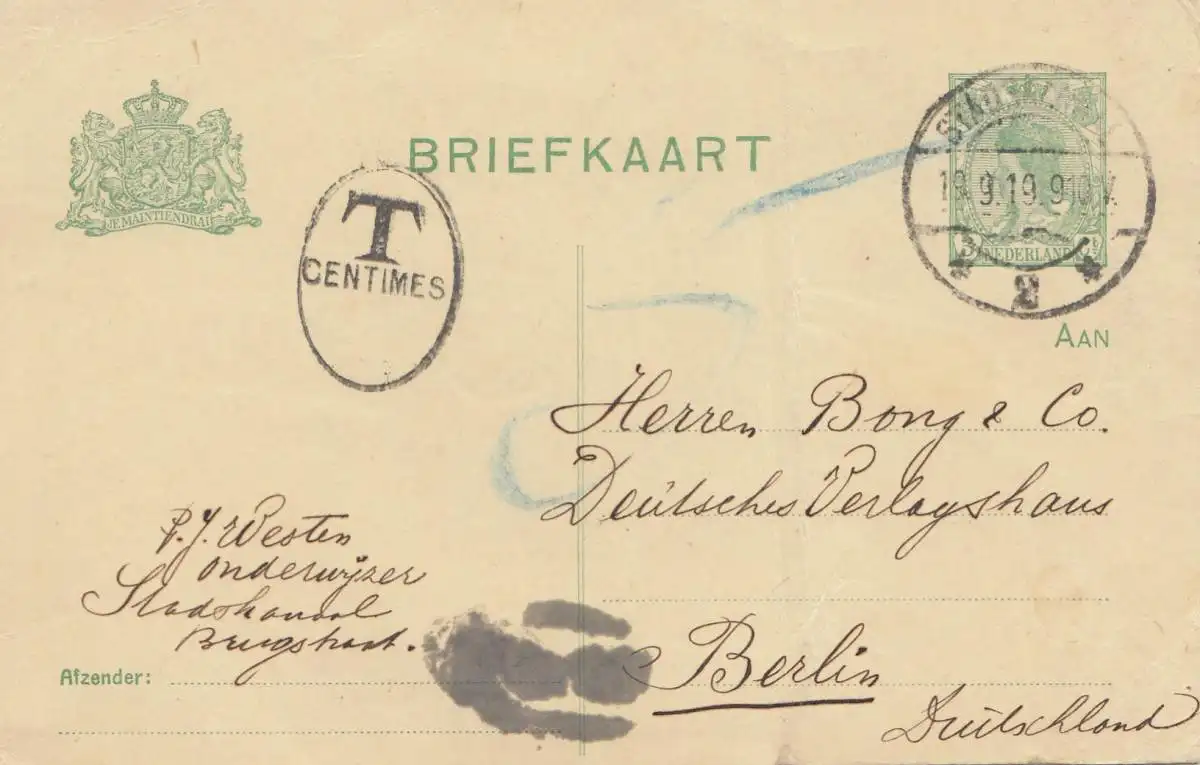 BRIEFKAART
JE MAINTIENDRAI
T
CENTIMES
19.9.19.9 10 V.
3 NEDERLAND
2
AAN
Herren Bong & Co.
Deutsches Verlagshaus
Berlin
Deutschland
P. J. Westen
onderwijzer
Stadskanaal
Brugstraat.
Afzender: